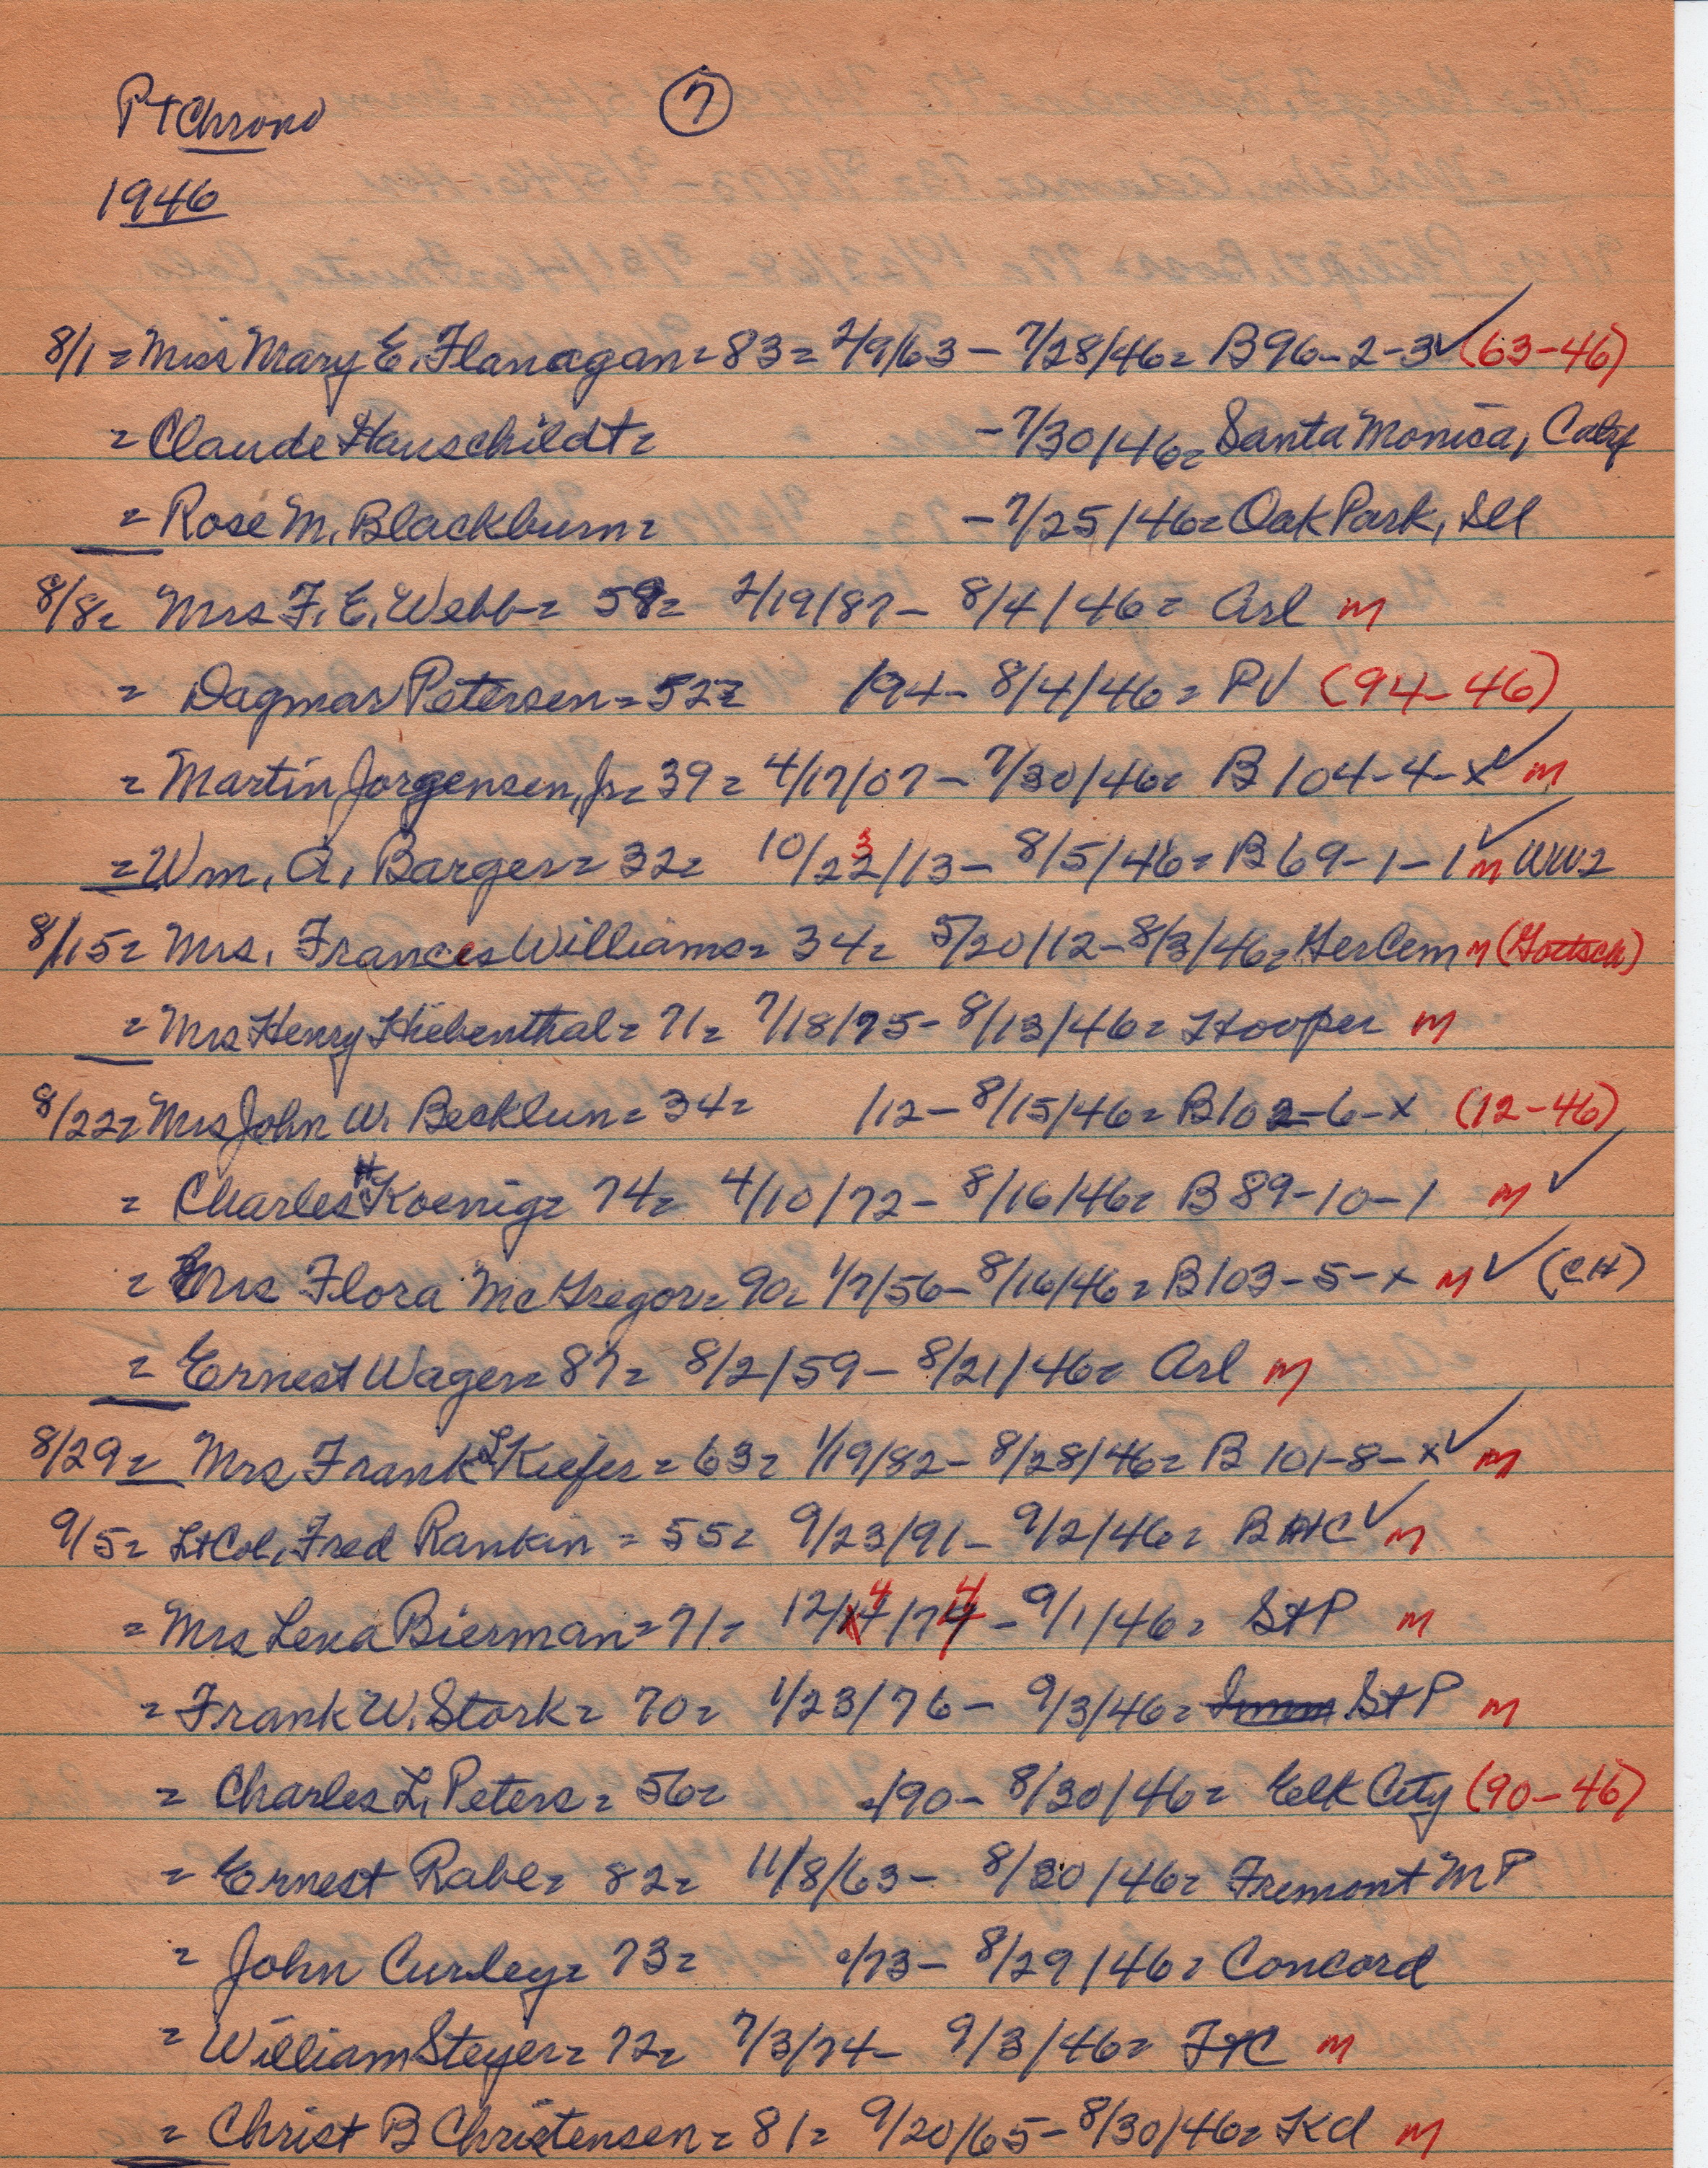 Pt Chrono 7
1946
8/1 = Miss Mary E. Flanagan = 83 = 2/9/63 - 7/28/46 = B96-2-3 ✓ (63-46)
= Claude Hauschildt = - 7/30/46 = Santa Monica, Calif
= Rose M. Blackburn = - 7/25/46 = Oak Park, Ill
8/8 = Mrs F. E. Webb = 59 = 2/19/87 - 8/4/46 = Arl m
= Dagmar Petersen = 52 = /94 - 8/4/46 = PV (94-46)
= Martin Jorgensen, Jr = 39 = 4/17/07 - 7/30/46 = B 104-4-x ✓ m
= Wm. A. Barger = 32 = 10/22/13 - 8/5/46 = B69-1-1 ✓ m WW2
8/15 = Mrs. Frances Williams = 34 = 5/20/12 - 8/3/46 = Her Cem m (Gottsch)
= Mrs Henry Hiebenthal = 71 = 7/18/75 - 8/13/46 = Hooper m
8/22 = Mrs John W. Becklun = 34 = /12 - 8/15/46 = B102-6-x (12-46)
= Charles H Koenig = 74 = 4/10/72 - 8/16/46 = B 89-10-1 m ✓
= Mrs Flora McGregor = 90 = 1/7/56 - 8/16/46 = B103-5-x m ✓ (CH)
= Ernest Wager = 87 = 8/2/59 - 8/21/46 = Arl m
8/29 = Mrs Frank L Kiefer = 63 = 1/19/82 - 8/28/46 = B 101-8-x ✓ m
9/5 = Lt Col. Fred Rankin = 55 = 9/23/91 - 9/2/46 = B HC ✓ m
= Mrs Lena Bierman = 71 = 12/4/74 - 9/1/46 = St P m
= Frank W. Stork = 70 = 1/23/76 - 9/3/46 = St P m
= Charles L. Peters = 56 = /90 - 8/30/46 = Elk City (90-46)
= Ernest Rabe = 82 = 11/8/63 - 8/30/46 = Fremont M P
= John Curley = 73 = /73 - 8/29/46 = Concord
= William Steyer = 72 = 7/3/74 - 9/3/46 = FC m
= Christ B Christensen = 81 = 9/20/65 - 8/30/46 = Kd m